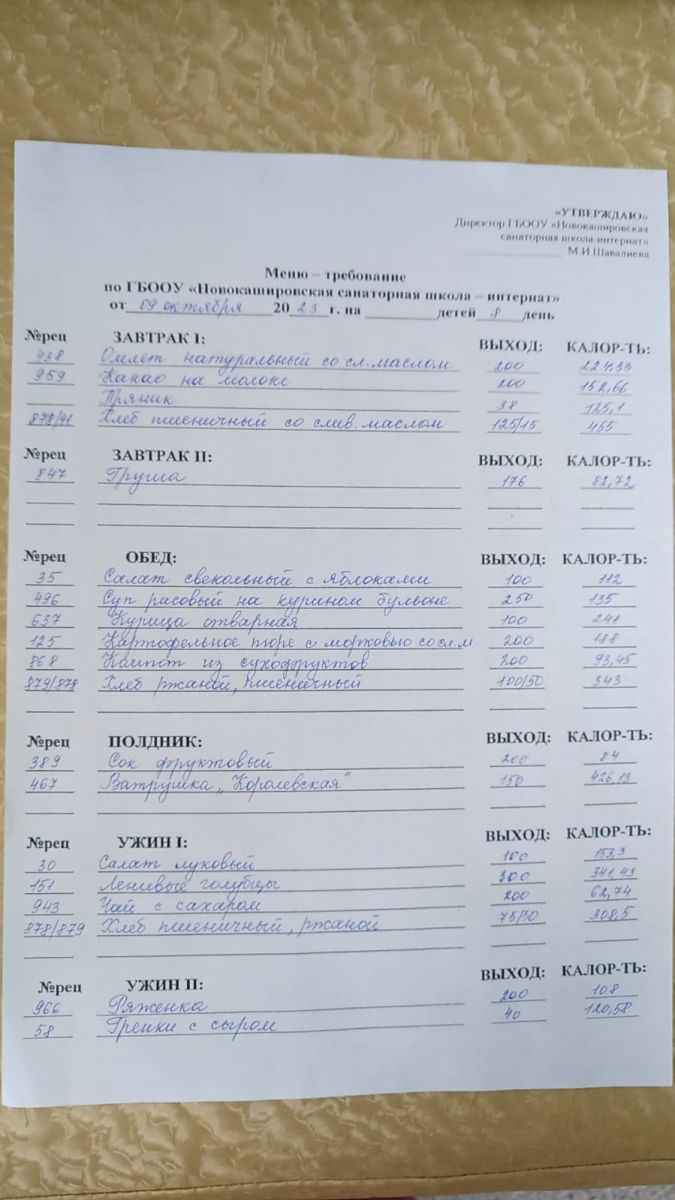 «УТВЕРЖДАЮ»
Директор ГБООУ «Новокашировская
санаторная школа-интернат»
М.И Шавалиева
Меню – требование
по ГБООУ «Новокашировская санаторная школа – интернат»
от 09 октября 2023 г. на детей 8 день
№рец ЗАВТРАК I: ВЫХОД: КАЛОР-ТЬ:
438 Омлет натуральный со сл. маслом 200 224,33
959 Какао на молоке 200 152,66
Пряник 38 125,1
878/41 Хлеб пшеничный со слив. маслом 125/15 455
№рец ЗАВТРАК II: ВЫХОД: КАЛОР-ТЬ:
847 Груша 176 82,72
№рец ОБЕД: ВЫХОД: КАЛОР-ТЬ:
35 Салат свекольный с яблоками 100 112
496 Суп рисовый на курином бульоне 250 135
637 Курица отварная 100 241
125 Картофельное пюре с морковью со сл.м 200 188
868 Компот из сухофруктов 200 93,45
879/878 Хлеб ржаной, пшеничный 100/50 343
№рец ПОЛДНИК: ВЫХОД: КАЛОР-ТЬ:
389 Сок фруктовый 200 84
467 Ватрушка „Королевская" 150 426,13
№рец УЖИН I: ВЫХОД: КАЛОР-ТЬ:
30 Салат луковый 100 153,3
151 Ленивые голубцы 300 341,43
943 Чай с сахаром 200 62,74
878/879 Хлеб пшеничный, ржаной 75/50 308,5
№рец УЖИН II: ВЫХОД: КАЛОР-ТЬ:
966 Ряженка 200 108
58 Гренки с сыром 40 120,58